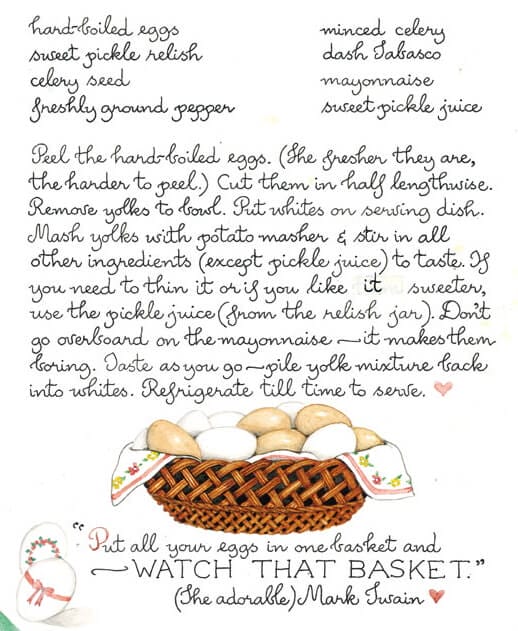 hard-boiled eggs
sweet pickle relish
celery seed
freshly ground pepper
minced celery
dash Tabasco
mayonnaise
sweet pickle juice
Peel the hard-boiled eggs. (The fresher they are,
the harder to peel.) Cut them in half lengthwise.
Remove yolks to bowl. Put whites on serving dish.
Mash yolks with potato masher & stir in all
other ingredients (except pickle juice) to taste. If
you need to thin it or if you like it sweeter,
use the pickle juice (from the relish jar). Don't
go overboard on the mayonnaise — it makes them
boring. Taste as you go — pile yolk mixture back
into whites. Refrigerate till time to serve. ♥
"Put all your eggs in one basket and
— WATCH THAT BASKET."
(The adorable) Mark Twain ♥